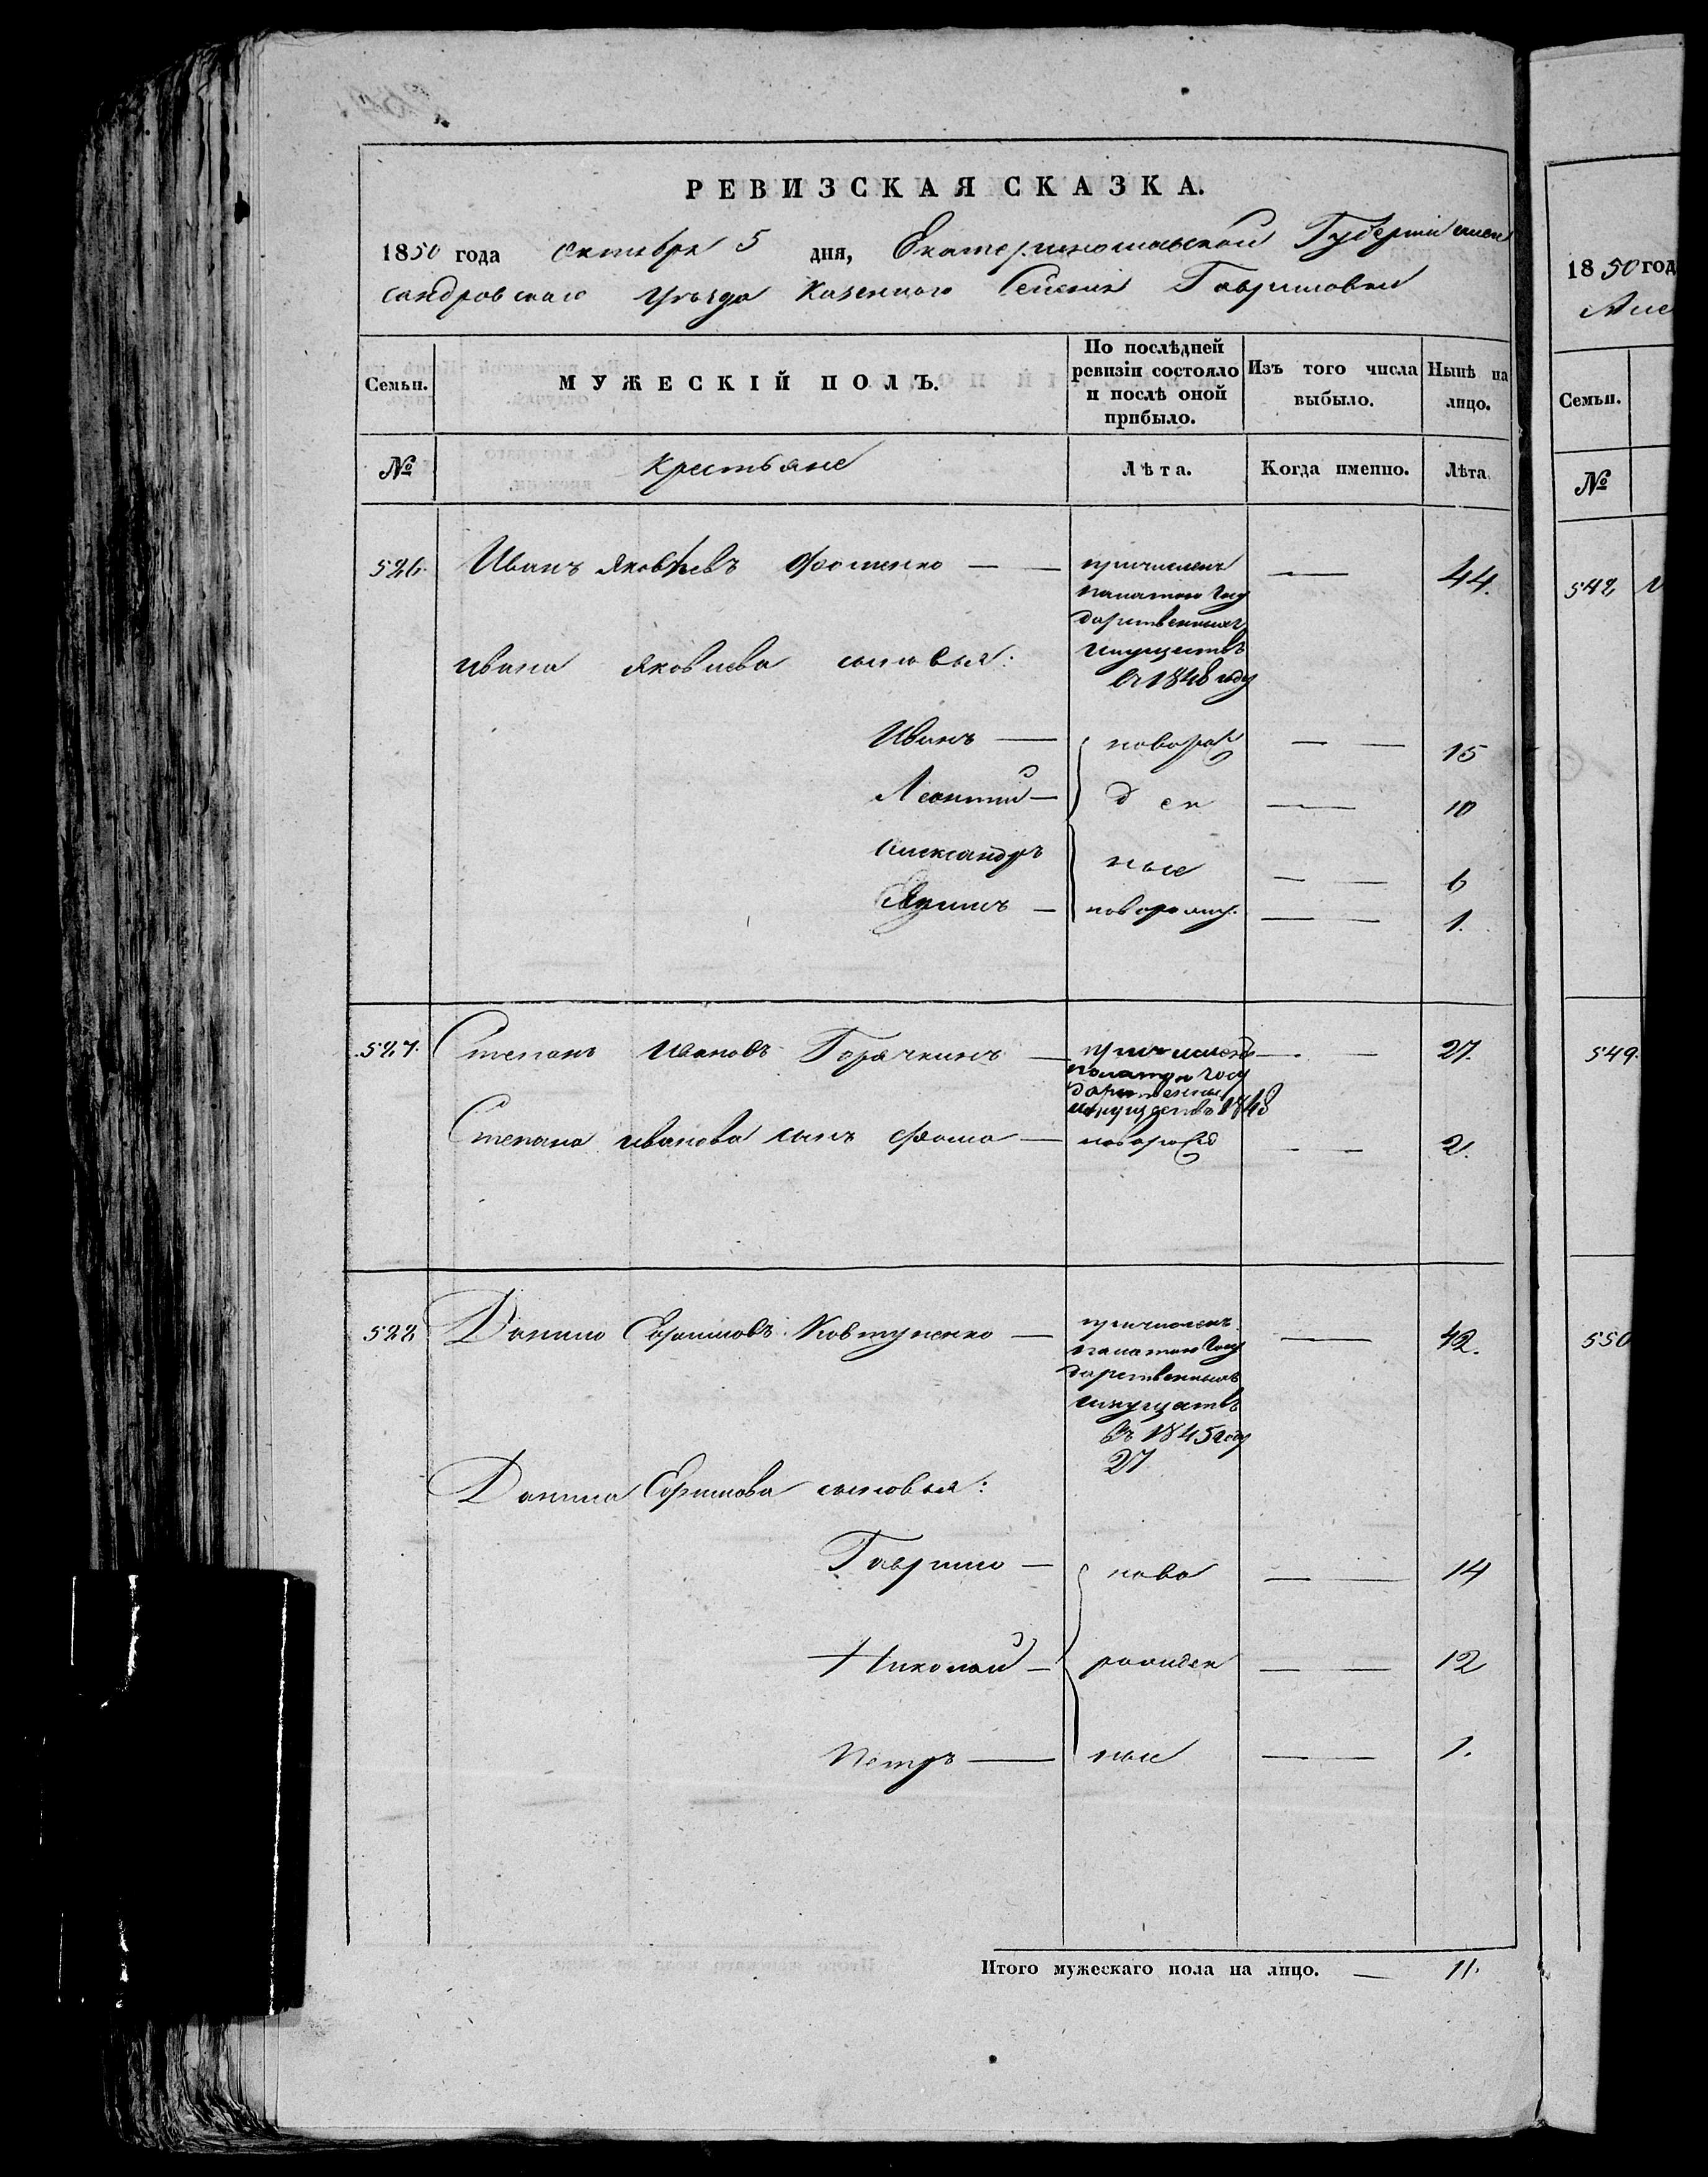 РЕВИЗСКАЯ СКАЗКА.
1850 года Октября 5 дня, Екатеринославской Губерніи Алек
сандровскаго Уѣзда Казеннаго Селенія Гавриловки
Семьи.
МУЖЕСКІЙ ПОЛЪ.
По послѣдней ревизіи состояло и послѣ оной прибыло.
Изъ того числа выбыло.
Нынѣ на лицо.
№
Крестьяне
Лѣта.
Когда именно.
Лѣта.
526. Иванъ Яковлевъ Фоменко — причисленъ — 44.
палатою Госу
дарственныхъ
имуществъ
въ 1848 году
Ивана Яковлева сыновья:
Иванъ — новорож — — 15
Леонтий — д ен — 10
Александръ ные — — 6
— новорожд. — — 1.
527. Степанъ Ивановъ Горячкинъ — причисленъ — — 27.
палатою Госу
дарственны
имуществъ 1848
Степана Иванова сынъ Фома — новорожд — — 2.
528 Данило Ефимовъ Ковтуненко — причисленъ — 42.
палатою Госу
дарственныхъ
имуществъ
въ 1845 году
27
Данила Ефимова сыновья:
Гаврило — ново — — 14
Николай — рожден — — 12
Петръ — ные — — 1.
Итого мужескаго пола на лицо. — 11.
1850 год
Алек
Семьи.
№
548
549.
550